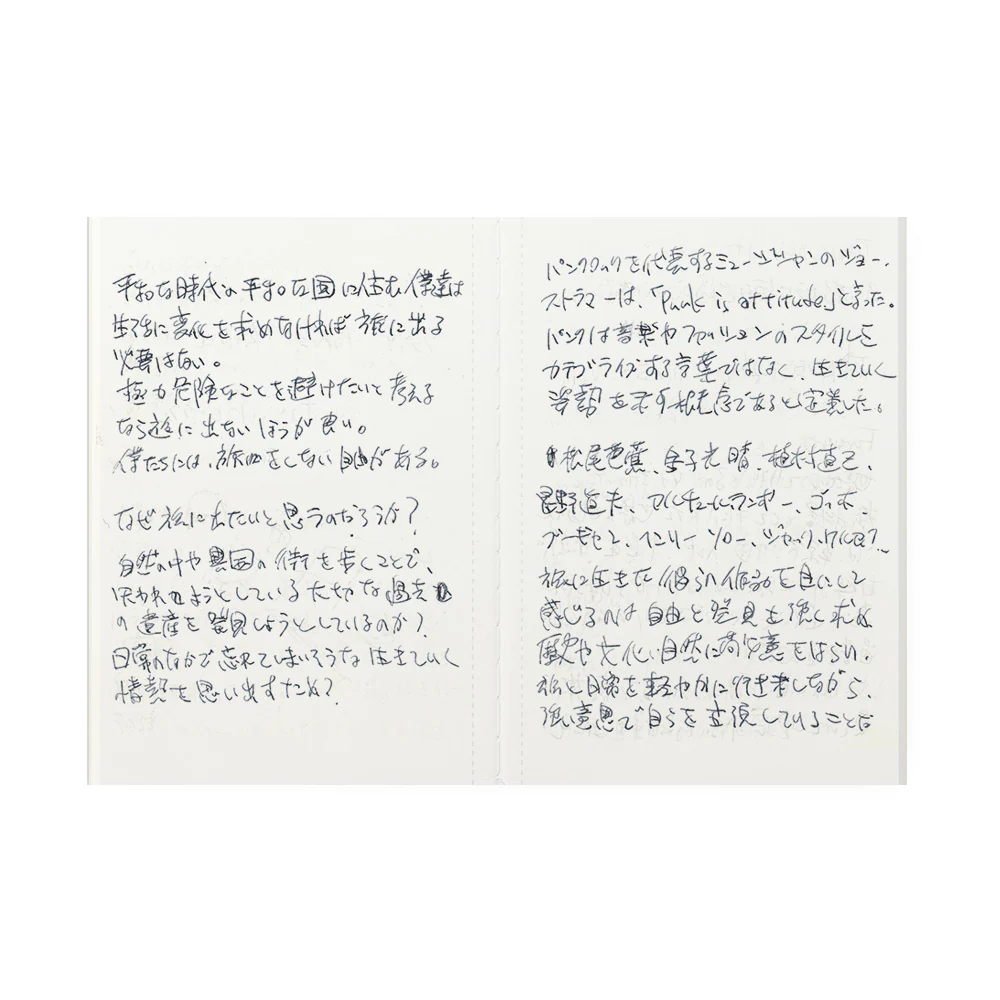 平和な時代の平和な国に住む僕達は
生活に変化を求めなければ旅に出る
必要はない。
極力危険なことを避けたいと考える
なら旅に出ないほうが良い。
僕たちには、旅をしない自由がある。
なぜ旅に出たいと思うのだろうか?
自然の中や異国の街を歩くことで、
失われようとしている大切な過去
の遺産を発見しようとしているのか?
日常のなかで忘れてしまいそうな生きていく
情熱を思い出すため?
パンクロックを代表するミュージシャンのジョー・
ストラマーは、「Punk is attitude.」と言った。
パンクは音楽やファッションのスタイルを
カテゴライズする言葉ではなく、生きていく
姿勢を示す概念であると定義した。
松尾芭蕉、金子光晴、植村直己、
星野道夫、アルチュールランボー、ゴッホ、
ゴーギャン、ヘンリー ソロー、ジャック・ケルアック
旅に生きた彼らの作品を目にして
感じるのは自由と発見を強く求め
歴史や文化、自然に敬意をはらい、
旅と日常を軽やかに行き来しながら、
強い意思で自らを表現していることだ